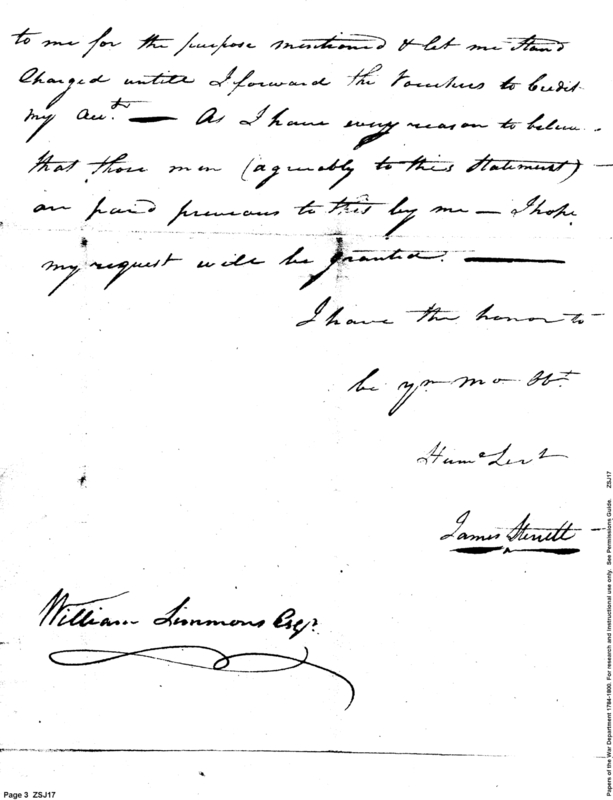 to me for the purpose mentioned & let me stand
Charged untill I forward the Vouchers to Credit
my Acct. — As I have every reason to believe
that those men (agreeably to this Statement) —
are paid previous to this by me — I hope
my request will be granted. —
I have the honor to
be yr mo Obt
Hume Servt
James Sterrett
William Simmons Esqr.
Page 3 ZSJ17
Papers of the War Department 1784-1800. For research and instructional use only. See Permissions Guide. ZSJ17